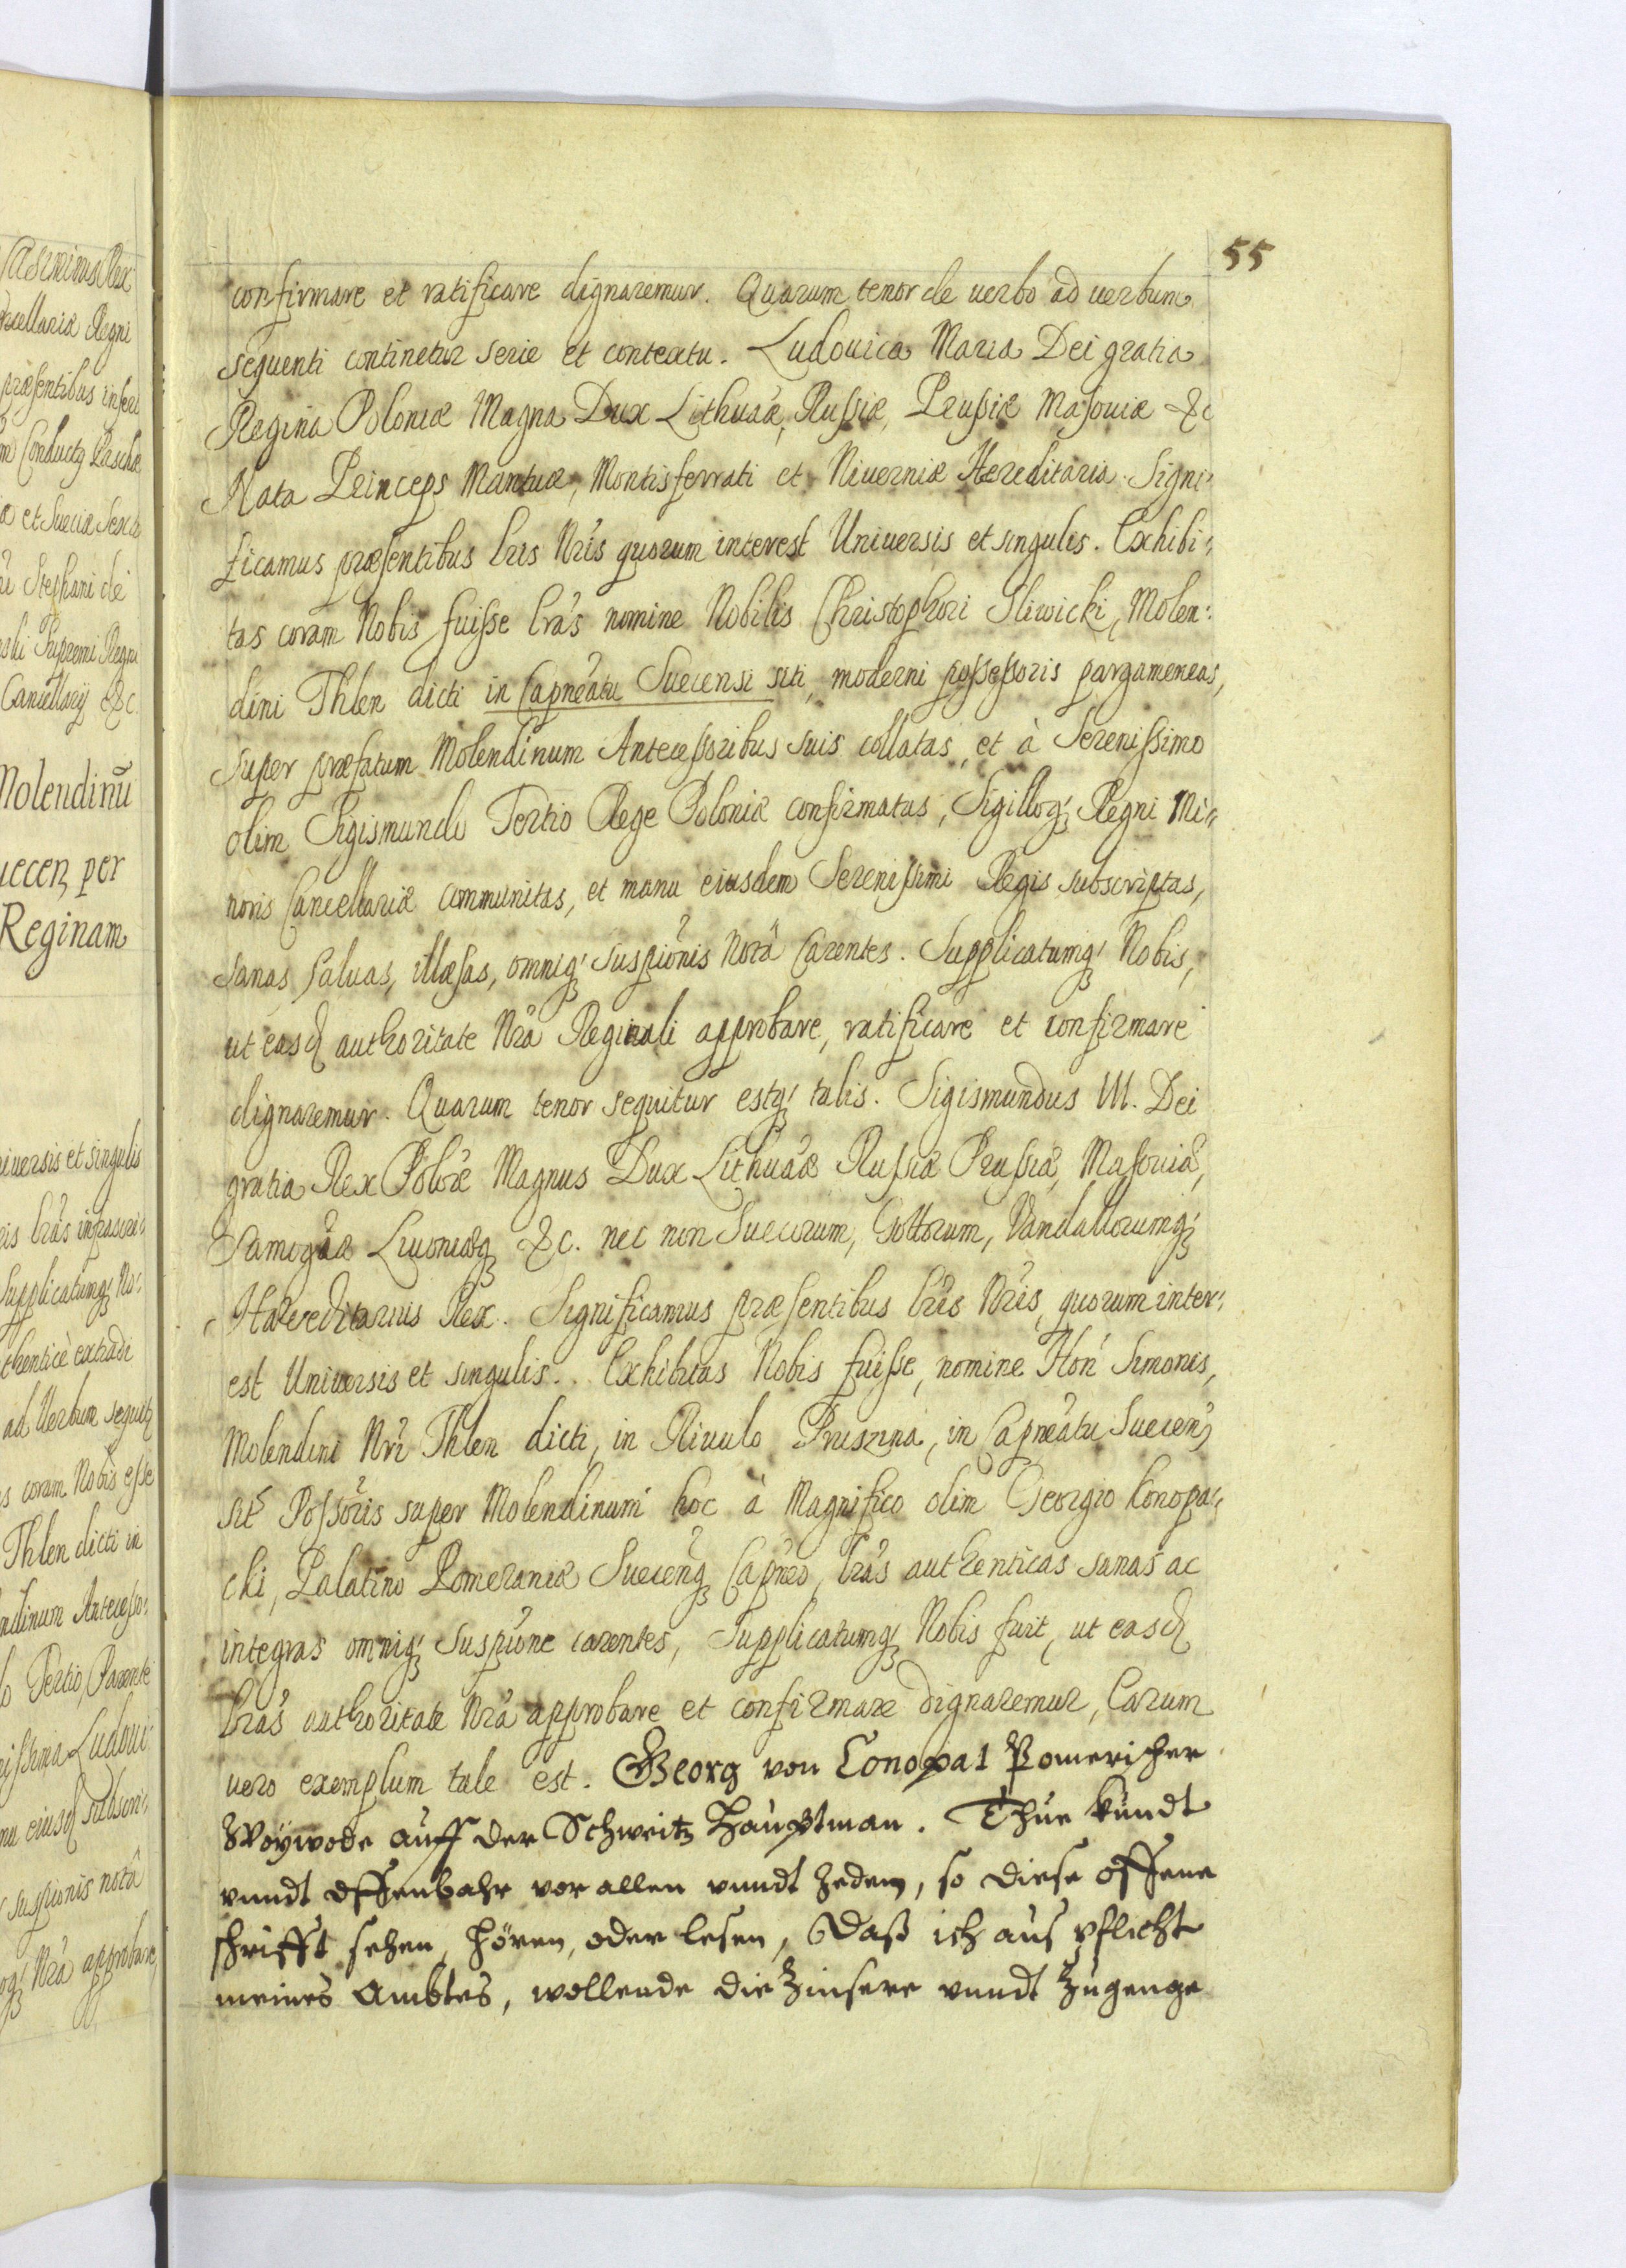 55
confirmare et ratificare dignaremur. Quarum tenor de uerbo ad uerbum
sequenti continetur serie et contextu. Ludouica Maria Dei gratia
Regina Poloniæ Magna Dux Lithuaæ, Russiæ, Prussiæ Masouiæ &c
Nata Princeps Mantuæ, Montisferrati et Niuerniæ Hereditaria. Signi:
ficamus præsentibus lris Nris quorum interest Uniuersis et singulis. Exhibi:
tas coram Nobis fuisse lras nomine Nobilis Christophori Sliwicki, Molen:
dini Thlen dicti in Capneatu Suecensi siti, moderni possessoris pargameneas,
super præfatum Molendinum Antecessoribus suis collatas, et à Serenissimo
olim Sigismundo Tertio Rege Poloniæ confirmatas, Sigilloq; Regni Mi:
noris Cancellariæ communitas, et manu eiusdem Serenissimi Regis subscriptas,
sanas saluas, illæsas, omniq; suspionis Notâ Carentes. Supplicatumq; Nobis,
ut easd authoritate Nra Reginali approbare, ratificare et confirmare
dignaremur. Quarum tenor sequitur estq; talis. Sigismundus III. Dei
gratia Rex Poloæ Magnus Dux Lithuaæ Russiæ Prussiæ, Masouiæ,
Samogaæ Liuoniæq; &c. nec non Suecorum, Gottorum, Vandallorumq;
Hæreditarius Rex. Significamus præsentibus lris Nris, quorum inter:
est Uniuersis et singulis. Exhibitas Nobis fuisse, nomine Hon Simonis,
Molendini Nri Thlen dicti, in Riuulo Pruszna, in Capneatu Suecen
sit Possoris super Molendinum hoc à Magnifico olim Georgio Konopa:
cki, Palatino Pomeraniæ Suecenq; Capneo, lras authenticas sanas ac
integras omniq; suspione carentes, Supplicatumq; Nobis fuit, ut easd
lras authoritate Nra approbare et confirmare dignaremur, Earum
uero exemplum tale est. Georg von Conopat Pomerischer
Woÿwode auff der Schweitz Hauptman. Thue kundt
vnndt offenbahr vor allen vnndt Jedem, so diese offene
schrifft sehen, hören, oder lesen, Daß ich aus pflicht
meines Ambtes, wollende die Zinsere vnndt Zugenge